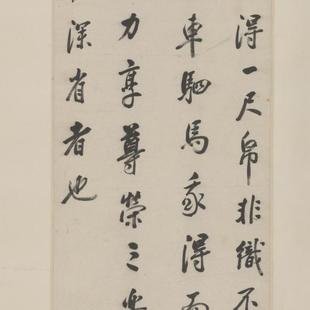 得一尺帛非織不
車駟馬我得而
力享尊榮三
深省者也